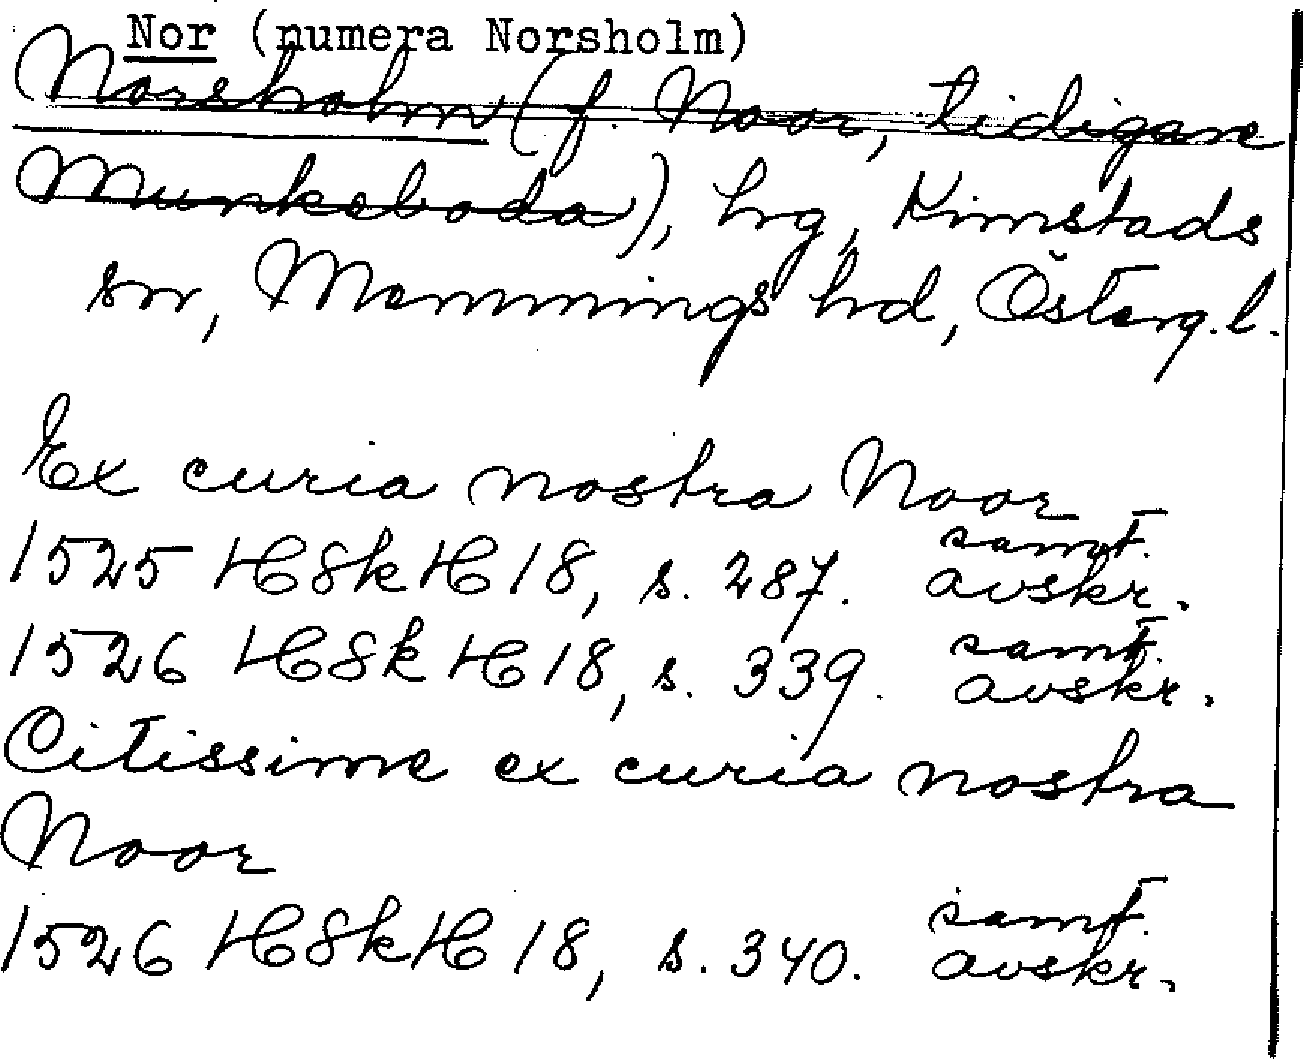 Nor (numera Norsholm)
Norsholm (f. Noor, tidigare
Munkeboda), hrg, Kimstads
sn, Memmings hd, Österg.l.
Ex curia nostra Noor
1525 HSkH 18, s. 287. samt. avskr.
1526 HSkH 18, s. 339. samt. avskr.
Citissime ex curia nostra
Noor
1526 HSkH 18, s. 340. samt. avskr.